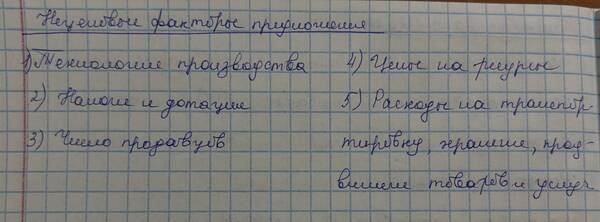 Неценовые факторы предложения
1) Технологие производства
2) Налоги и дотации
3) Число продавцов
4) Цены на ресурсы
5) Расходы на транспор-
тировку, хранение, прод-
вижение товаров и услуг